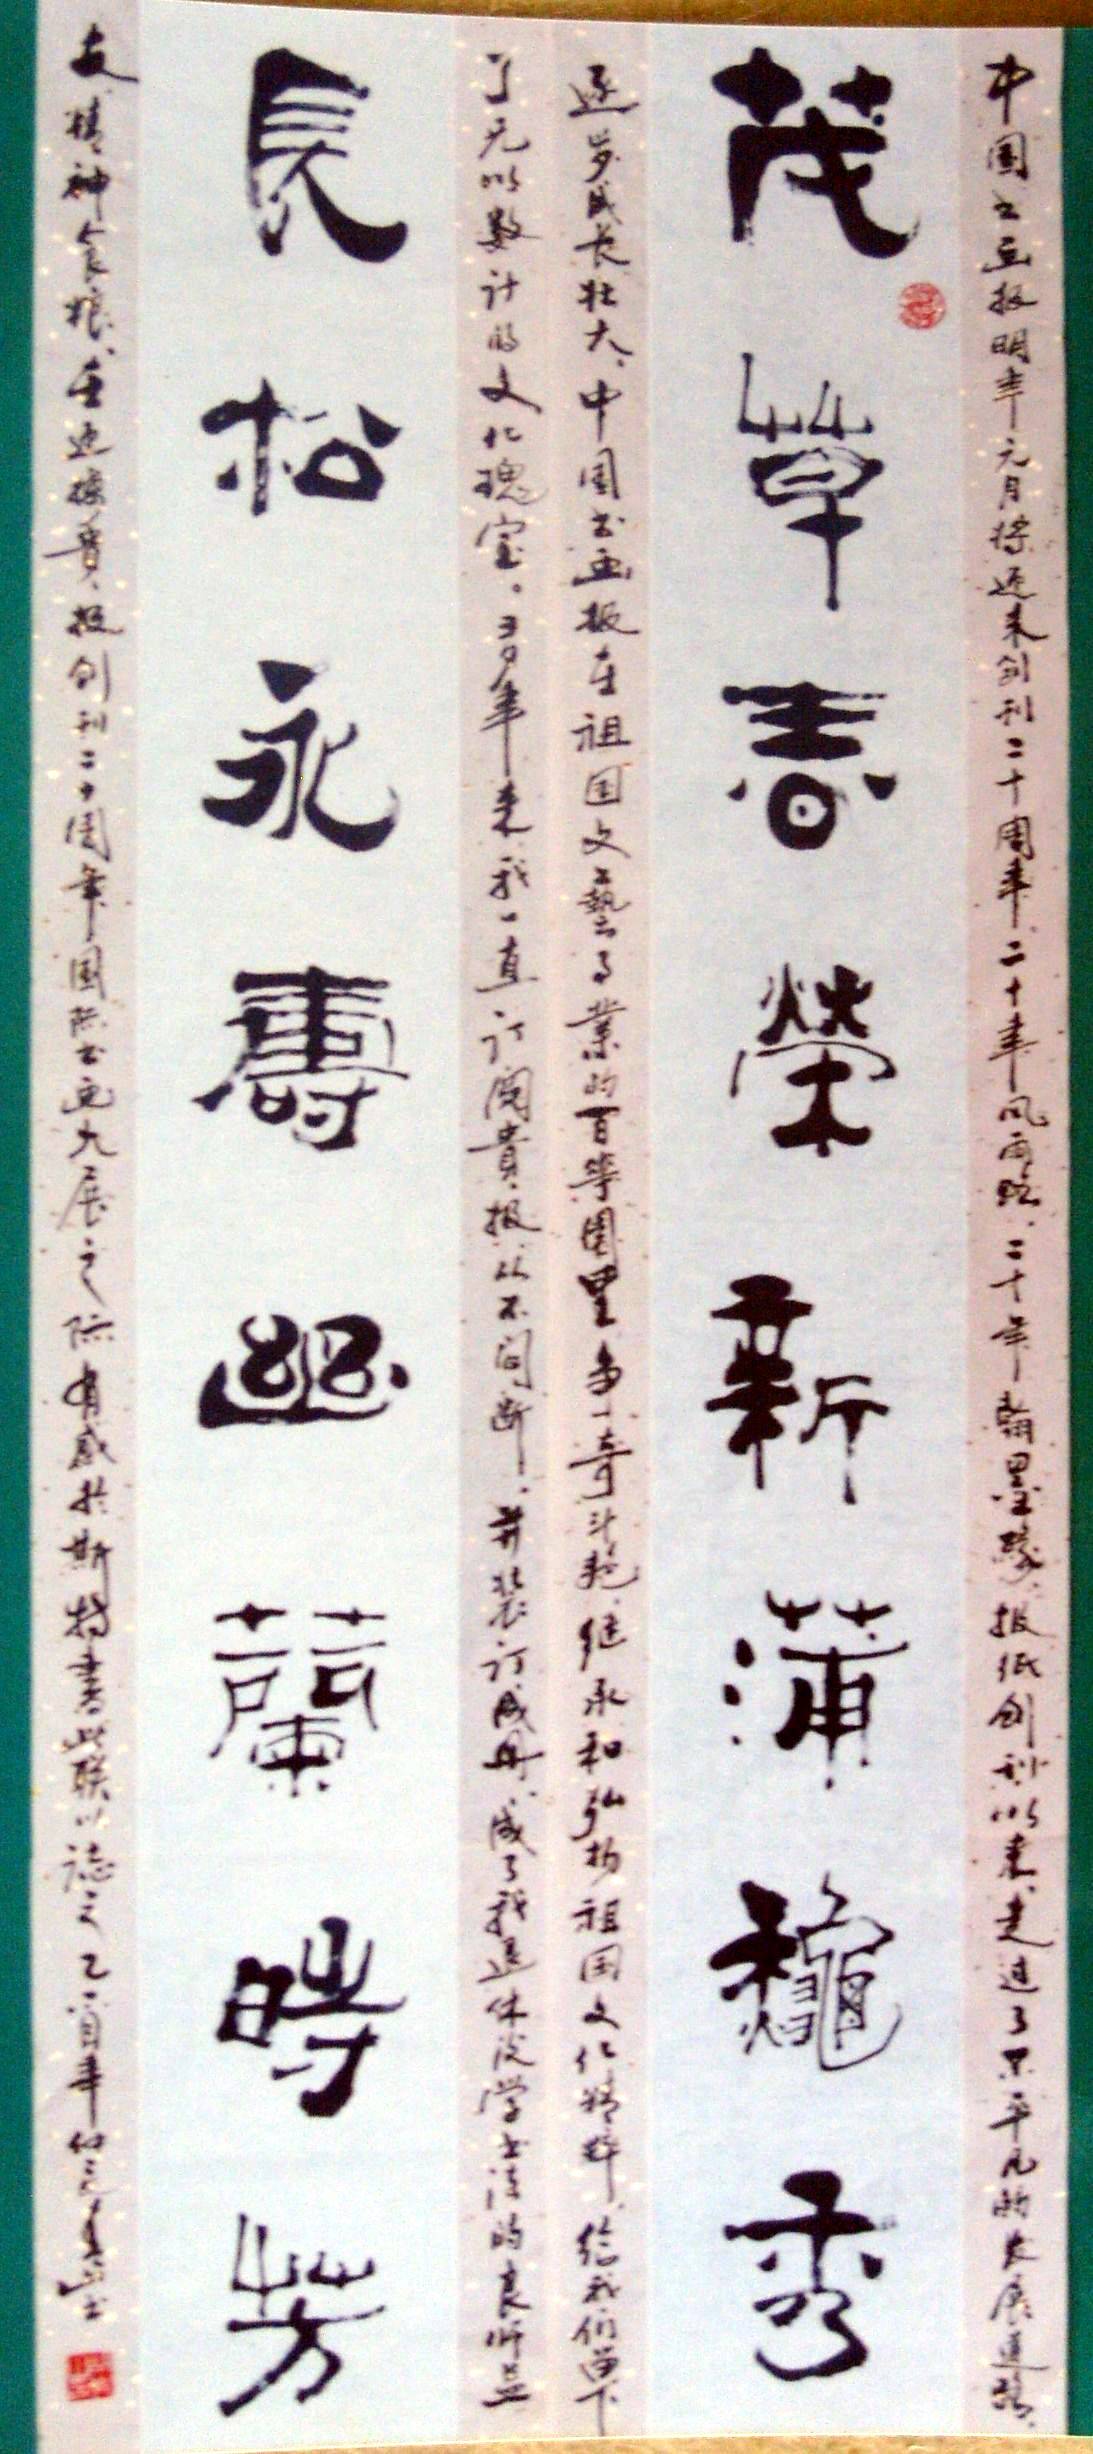 中国书画报明年元月将迎来创刊二十周年、二十年风雨路、二十年翰墨缘、报纸创刊以来、走过了不平凡的发展道路、
茂草春榮新蒲龝秀
逐步成长壮大、中国书画报在祖国文藝事業的百华園里争奇斗艳、继承和弘扬祖国文化精粹、给我们留下
了无以数计的文化瑰宝。多年来我一直订阅貴报、从不间断、并装订成册、成了我退休后学书法的良师益
長松永壽幽蘭時芳
友、精神食粮、在迎接貴报创刊二十周年国际书画大展之际有感於斯特書此联以誌之 乙酉年仲夏书